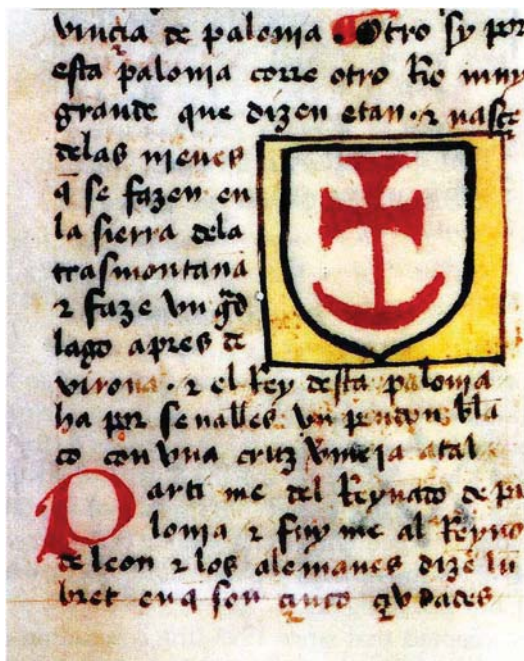 vinçia de palonia. Otro sy por
esta palonia corre otro Rio muy
grande que dizen etan. ⁊ nasçe
delas nieues
q̄ se fazen en
la sierra dela
trasmontana
⁊ faze vn gᷓd
lago apres de
virona. ⁊ el Rey desta palonia
ha por señalles vn pendon bla
co con vna cruz vmeja atal
Parti me del Reynado de pa
lonia ⁊ fuy me al Reyno
de leon ⁊ los alemanes dizē lu
bret en q̄ son çinco çibdades